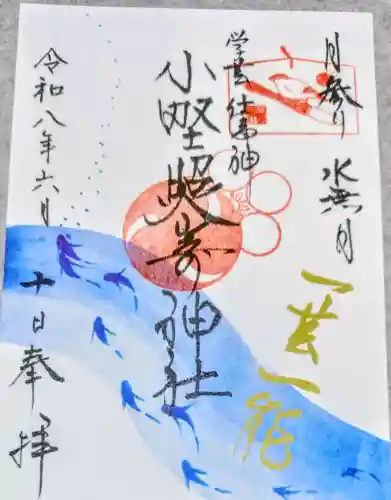 月参り 水無月
一芸一能
学芸 仕事 神
小野照崎神社
令和八年六月
十日奉拝